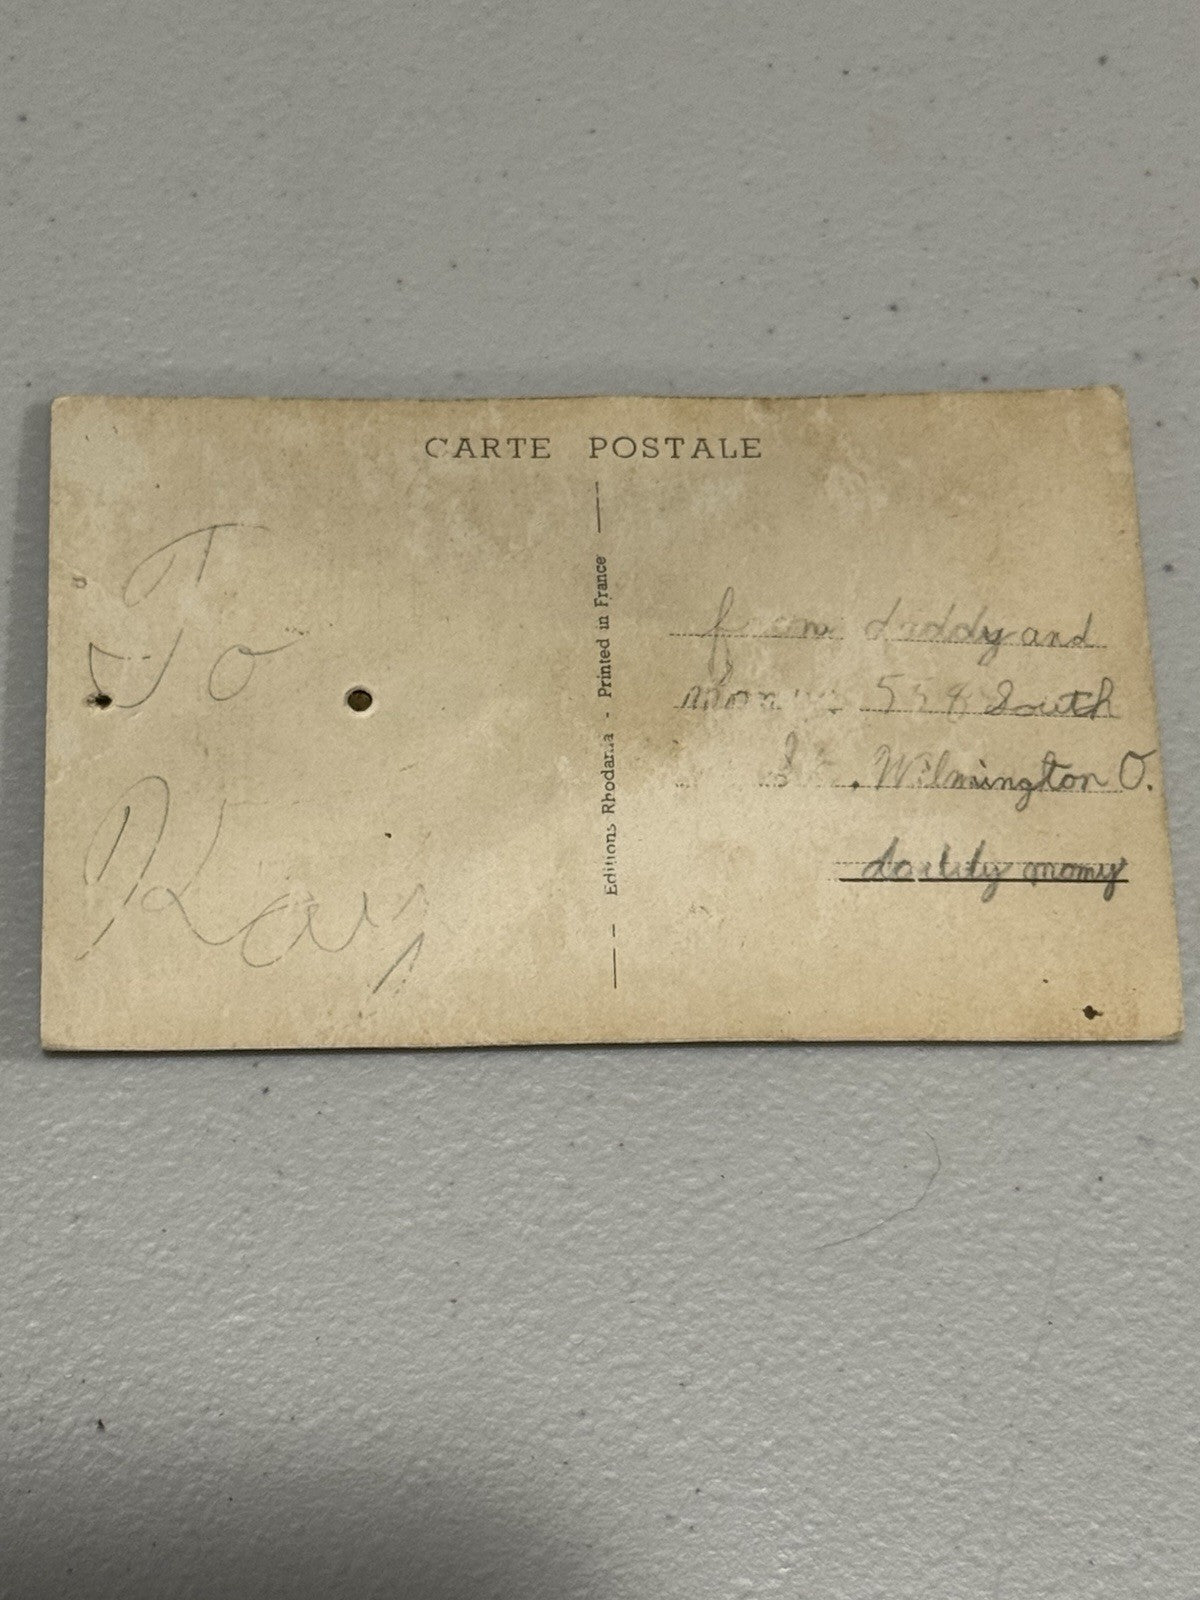 CARTE POSTALE
To
Kay
Editions Rhodania - Printed in France
from daddy and
South
St. Wilmington O.
daddy momy